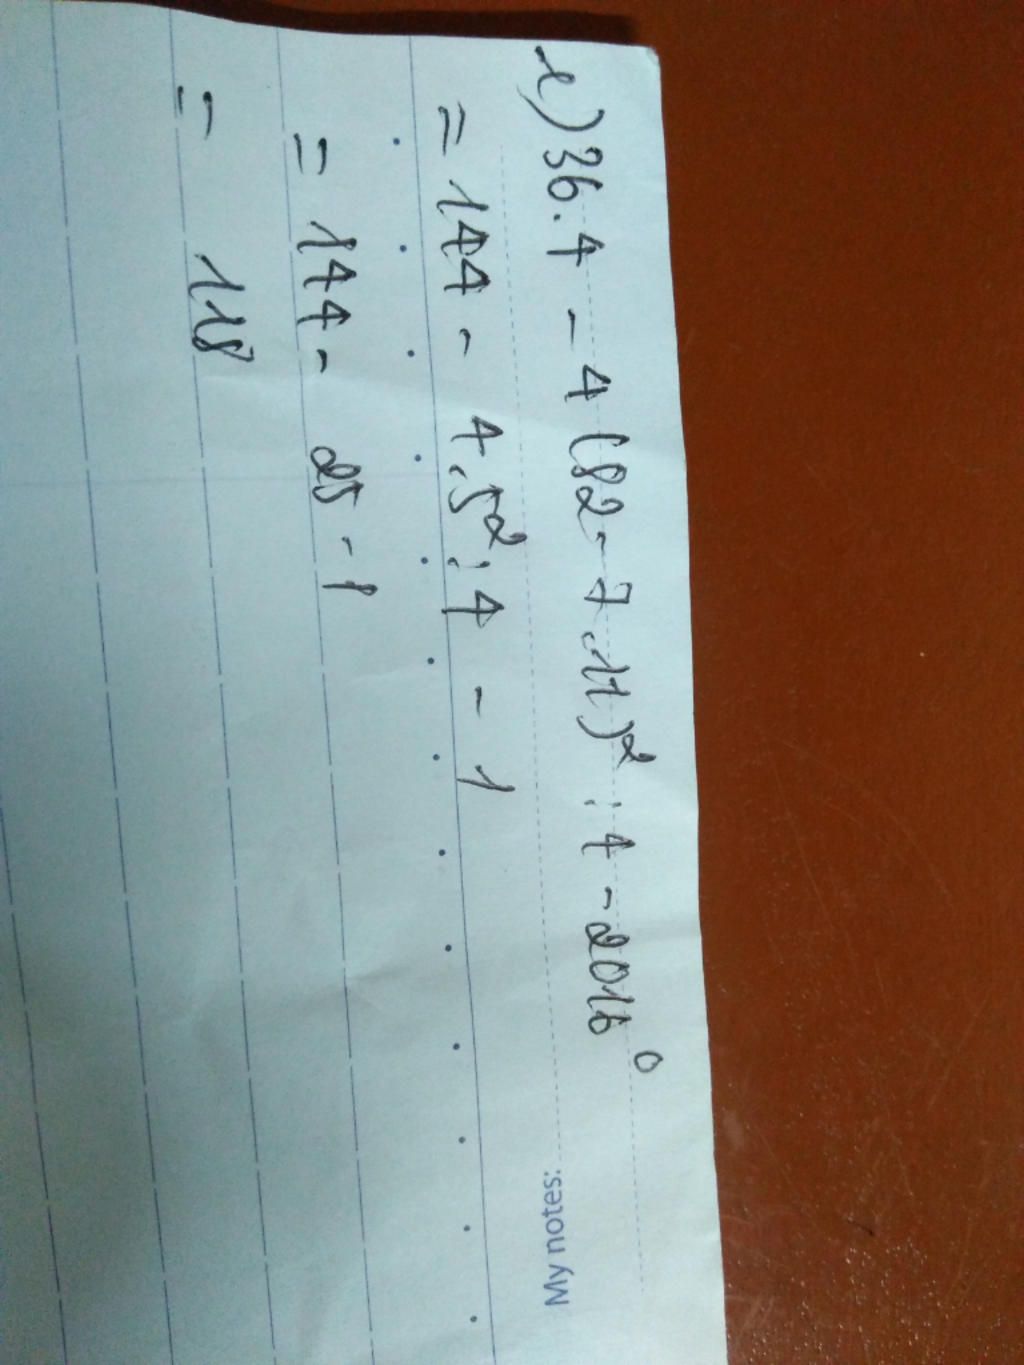 e) 36 . 4 - 4 (82 - 7 . 11)² : 4 - 2016⁰
= 144 - 4 . 5² : 4 - 1
= 144 - 25 - 1
= 118
My notes: